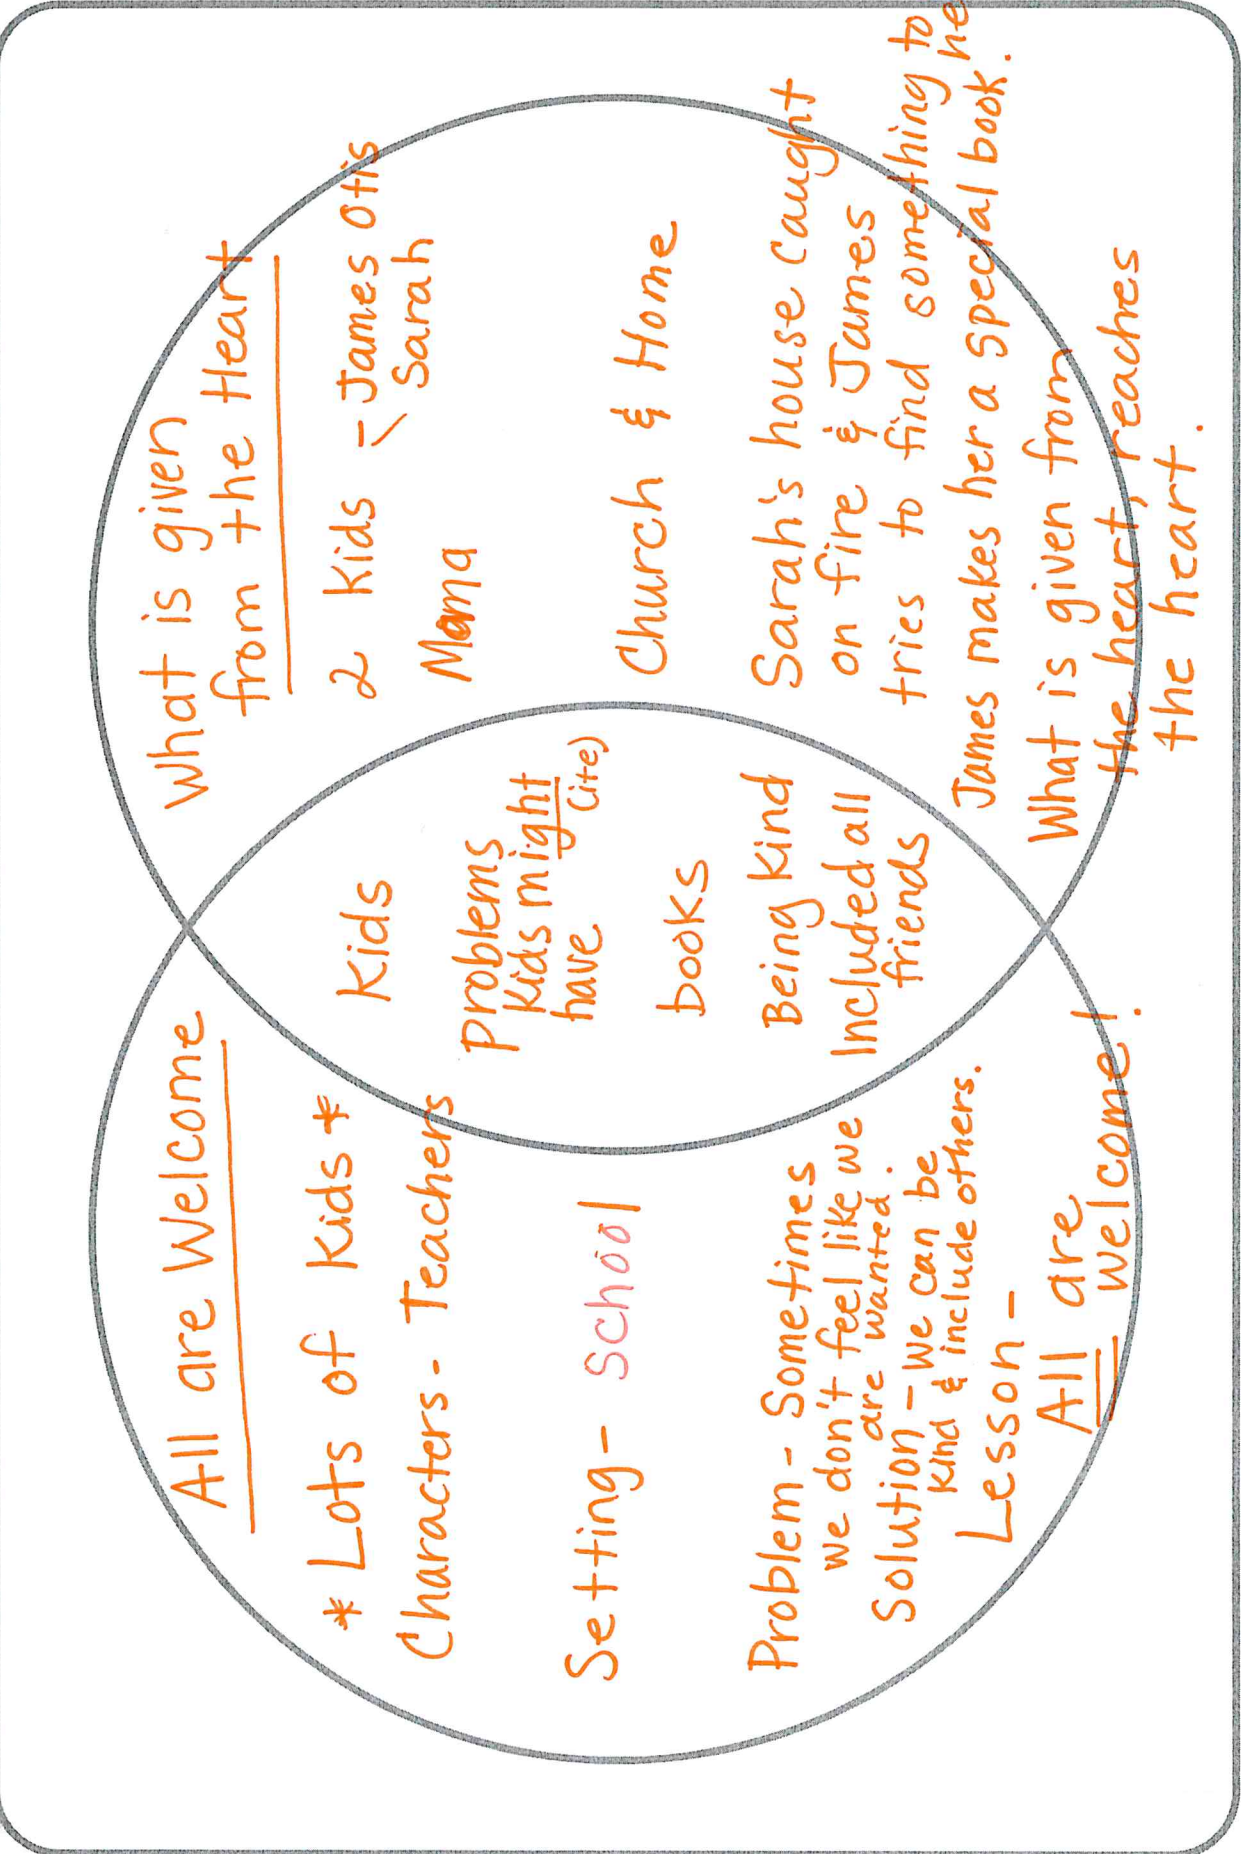 All are Welcome
* Lots of Kids *
Characters - Teachers
Setting - School
Problem - Sometimes
we don't feel like we
are wanted.
Solution - We can be
Kind & include others.
Lesson -
All are
welcome!
Kids
Problems
Kids might
have (Cite)
books
Being Kind
Included all
friends
What is given
from the Heart
2 Kids - James Otis
Sarah
Mama
Church & Home
Sarah's house caught
on fire & James
tries to find something to
James makes her a special book.
What is given from
the heart, reaches
the heart.